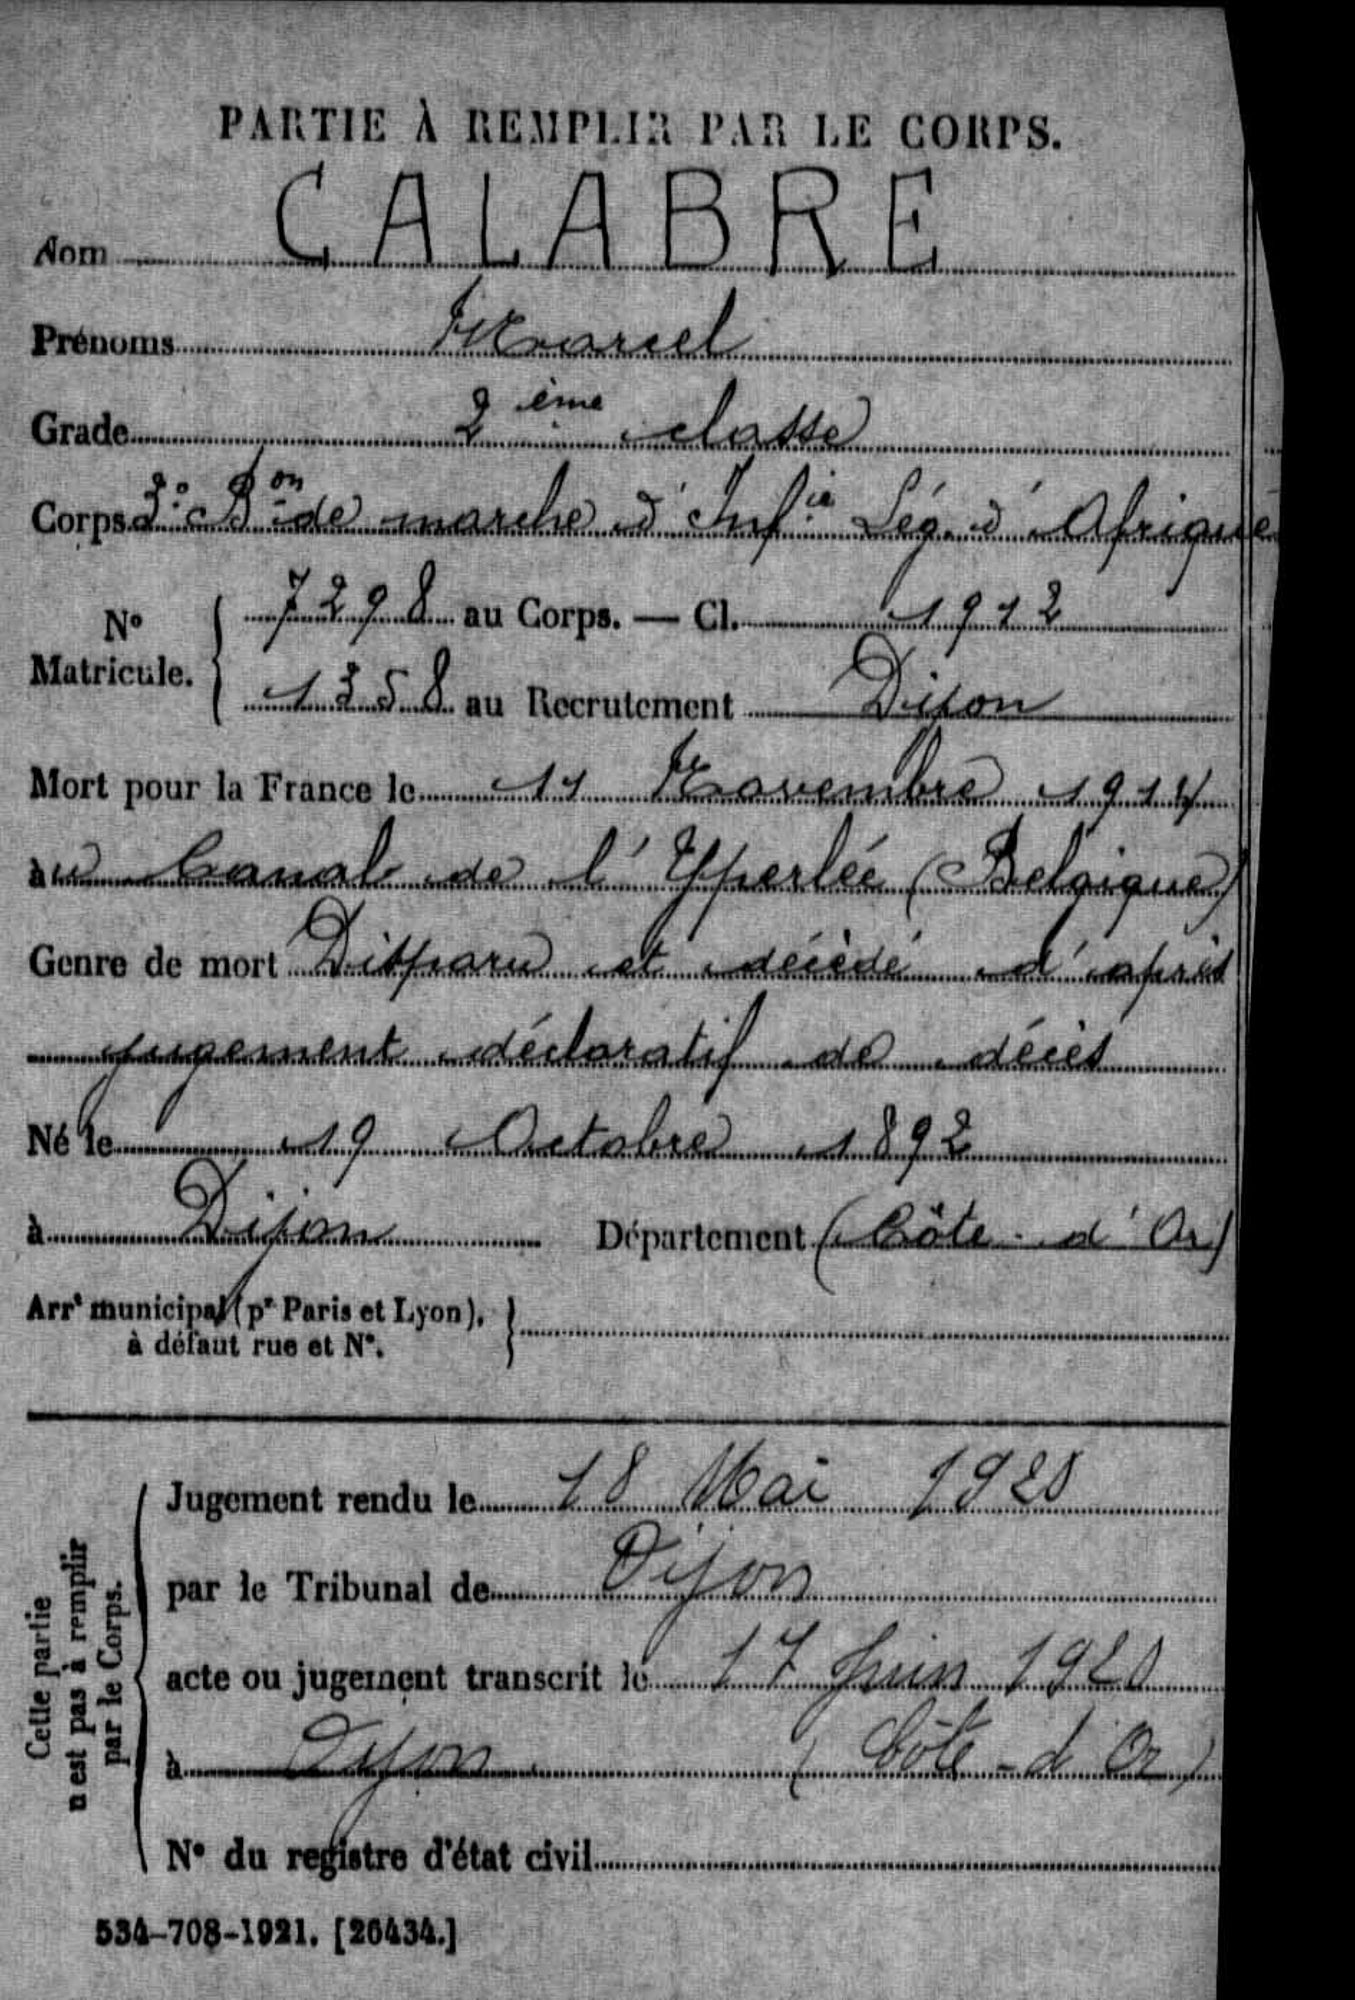 PARTIE À REMPLIR PAR LE CORPS.
Nom CALABRE
Prénoms Marcel
Grade 2ème classe
Corps 3e Bon de marche d'Infie Lég. d'Afrique
No Matricule. { 7298 au Corps. — Cl. 1912
1358 au Recrutement Dijon
Mort pour la France le 11 Novembre 1914
au Canal de l'Yperlée (Belgique)
Genre de mort Disparu et décédé d'après
jugement déclaratif de décès
Né le 19 Octobre 1892
à Dijon Département (Côte-d'Or)
Arrt municipal (pr Paris et Lyon), }
à défaut rue et No.
Cette partie
n'est pas à remplir
par le Corps.
Jugement rendu le 18 Mai 1920
par le Tribunal de Dijon
acte ou jugement transcrit le 17 Juin 1920
à Dijon (Côte-d'Or)
No du registre d'état civil
534-708-1921. [26434.]